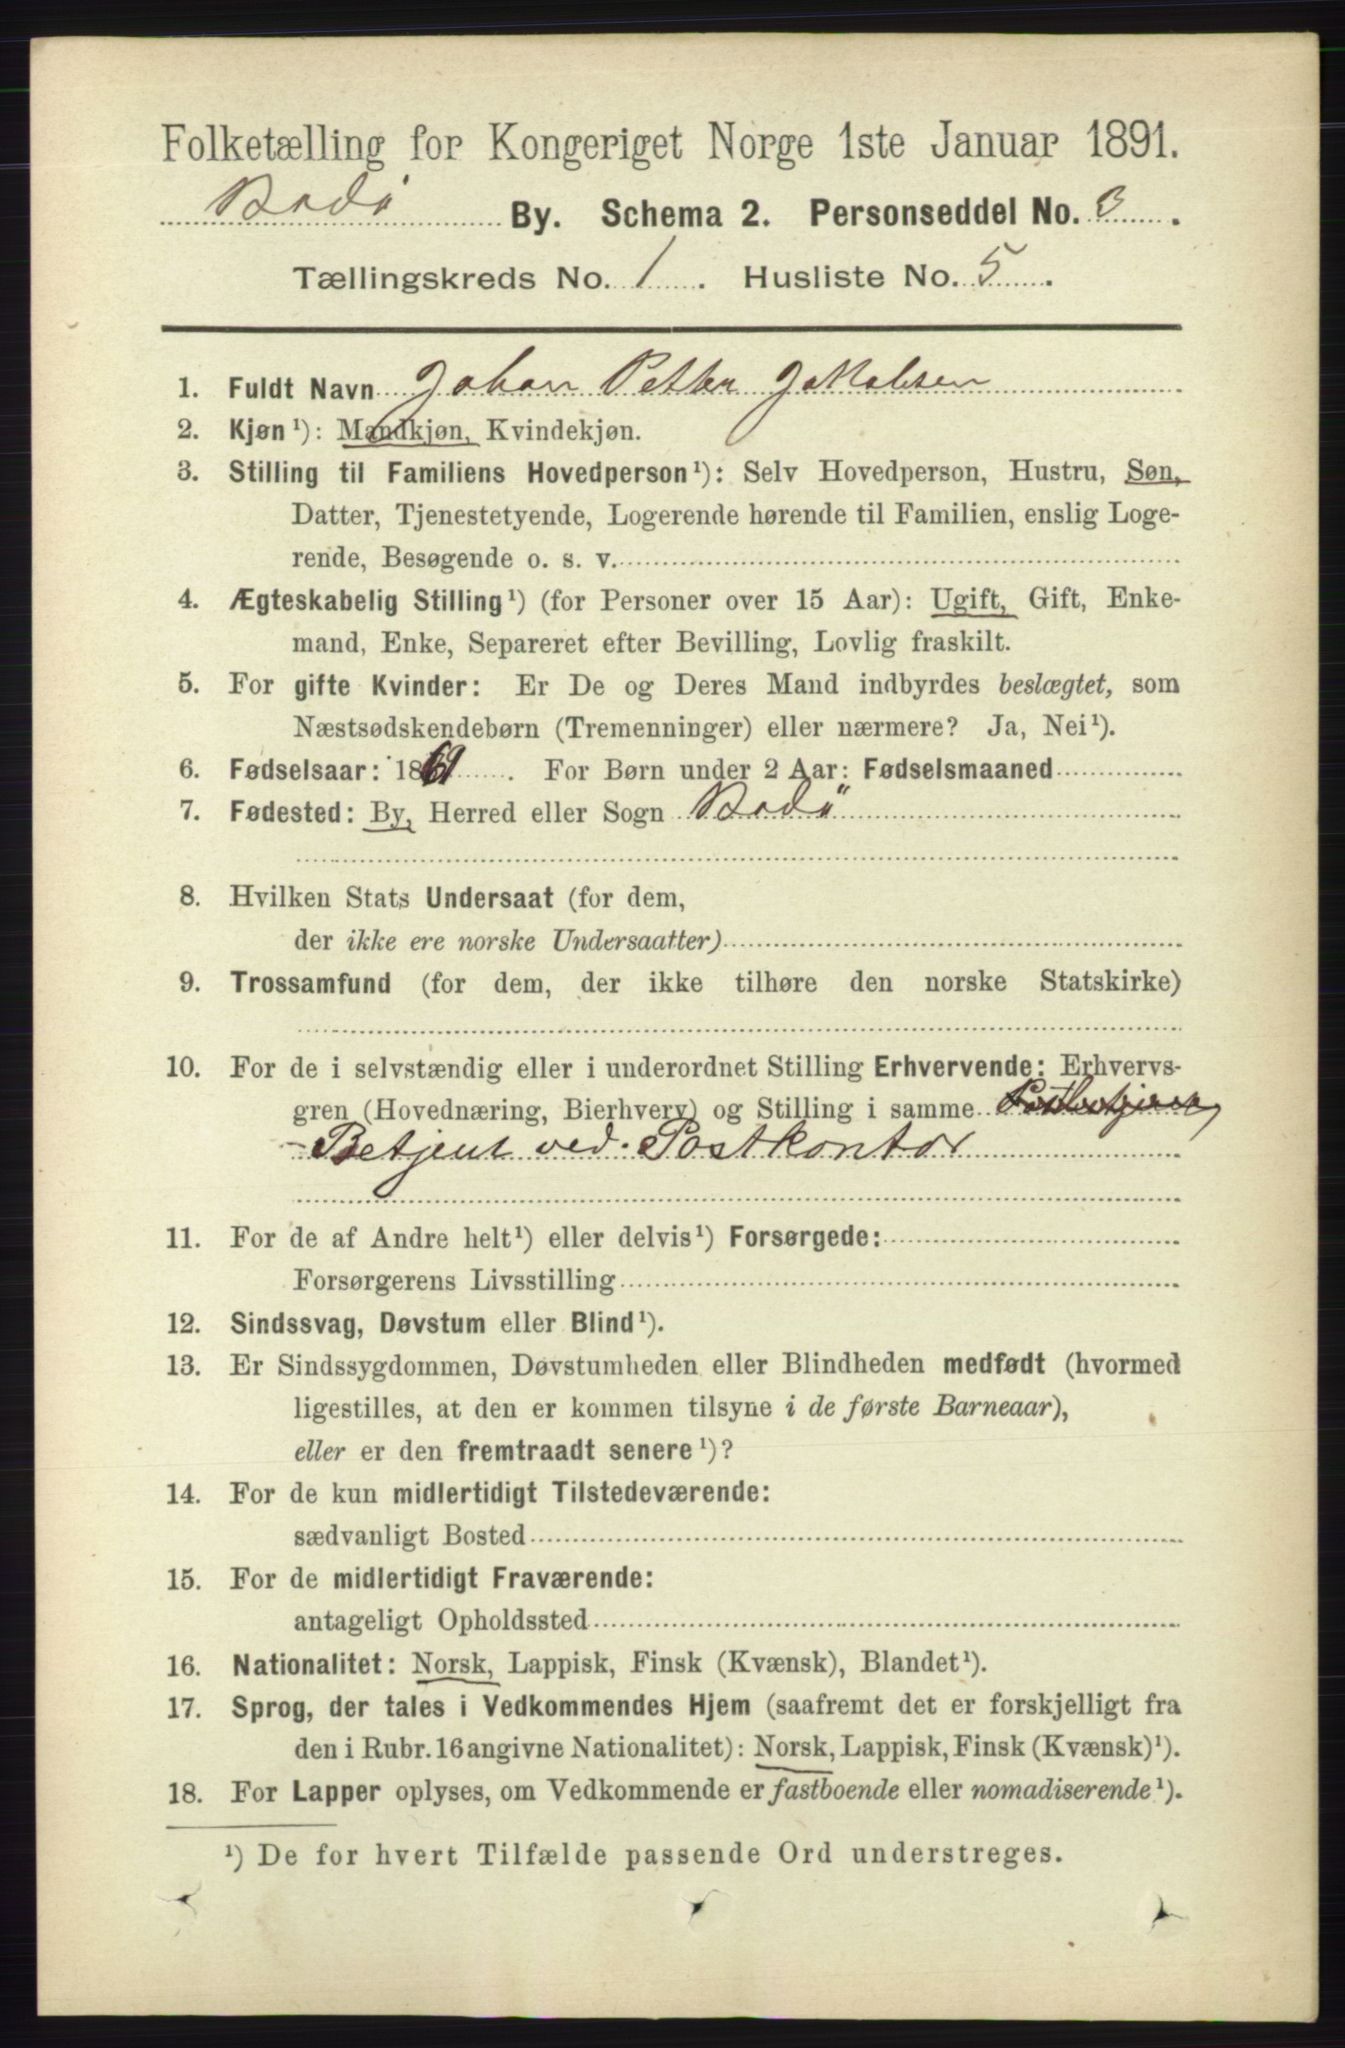 Folketælling for Kongeriget Norge 1ste Januar 1891.
Bodö By. Schema 2. Personseddel No. 3.
Tællingskreds No. 1. Husliste No. 5.
1. Fuldt Navn Johan Petter Jakobsen
2. Kjøn¹): Mandkjøn, Kvindekjøn.
3. Stilling til Familiens Hovedperson¹): Selv Hovedperson, Hustru, Søn,
Datter, Tjenestetyende, Logerende hørende til Familien, enslig Loge-
rende, Besøgende o. s. v.
4. Ægteskabelig Stilling¹) (for Personer over 15 Aar): Ugift, Gift, Enke-
mand, Enke, Separeret efter Bevilling, Lovlig fraskilt.
5. For gifte Kvinder: Er De og Deres Mand indbyrdes beslægtet, som
Næstsødskendebørn (Tremenninger) eller nærmere? Ja, Nei¹).
6. Fødselsaar: 1869. For Børn under 2 Aar: Fødselsmaaned
7. Fødested: By, Herred eller Sogn Bodö
8. Hvilken Stats Undersaat (for dem,
der ikke ere norske Undersaatter)
9. Trossamfund (for dem, der ikke tilhøre den norske Statskirke)
10. For de i selvstændig eller i underordnet Stilling Erhvervende: Erhvervs-
gren (Hovednæring, Bierhverv) og Stilling i samme
Betjent ved Postkontor
11. For de af Andre helt¹) eller delvis¹) Forsørgede:
Forsørgerens Livsstilling
12. Sindssvag, Døvstum eller Blind¹).
13. Er Sindssygdommen, Døvstumheden eller Blindheden medfødt (hvormed
ligestilles, at den er kommen tilsyne i de første Barneaar),
eller er den fremtraadt senere¹)?
14. For de kun midlertidigt Tilstedeværende:
sædvanligt Bosted
15. For de midlertidigt Fraværende:
antageligt Opholdssted
16. Nationalitet: Norsk, Lappisk, Finsk (Kvænsk), Blandet¹).
17. Sprog, der tales i Vedkommendes Hjem (saafremt det er forskjelligt fra
den i Rubr. 16 angivne Nationalitet): Norsk, Lappisk, Finsk (Kvænsk)¹).
18. For Lapper oplyses, om Vedkommende er fastboende eller nomadiserende¹).
¹) De for hvert Tilfælde passende Ord understreges.